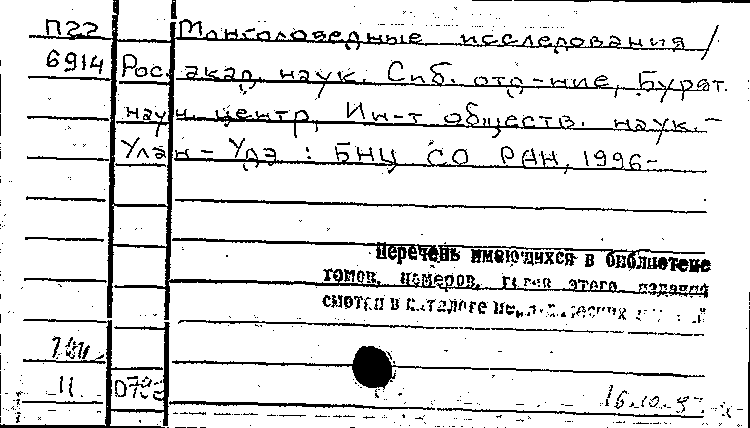 П22 Монголоведные исследования /
6914 Рос. акад. наук. Сиб. отд-ние, Бурят.
науч. центр, Ин-т обществ. наук. –
Улан – Удэ : БНЦ СО РАН, 1996–
Перечень имеющихся в библиотеке
томов, номеров, этого издания
смотри в каталоге
11
16.10.97